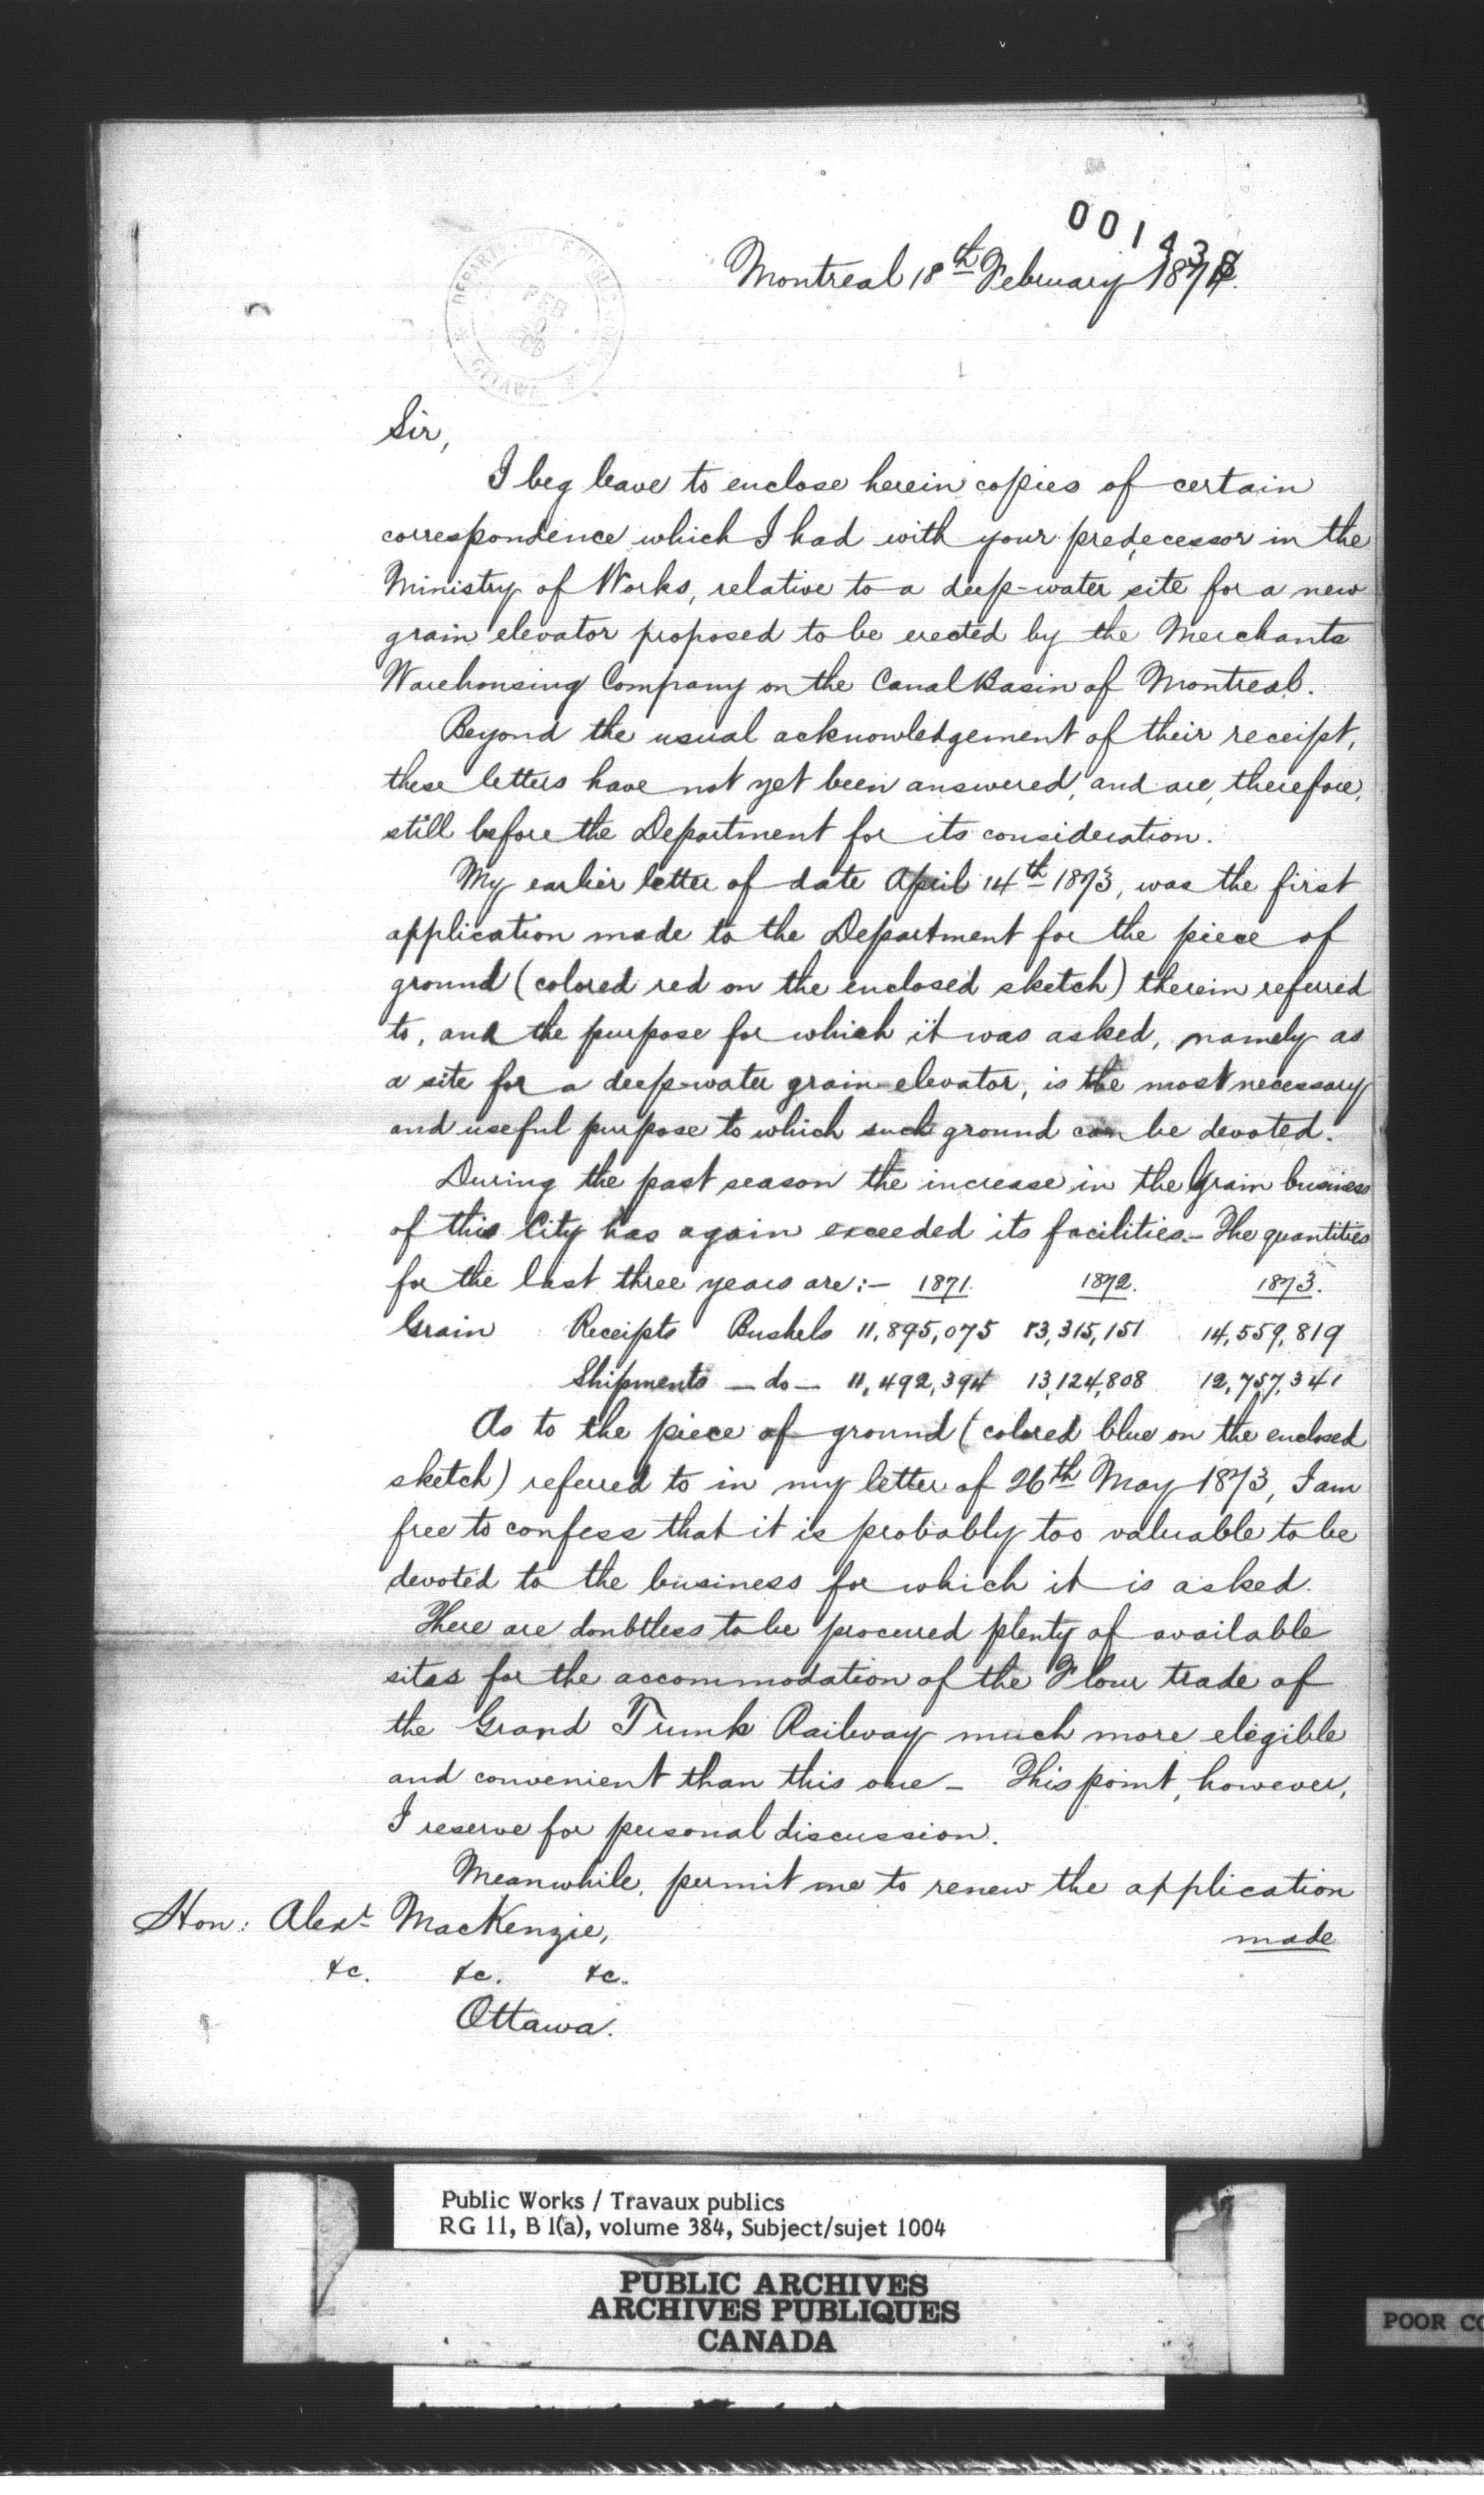 001438
Montreal 18th February 1874.
DEPART
FEB
OTTAWA
Sir,
I beg leave to enclose herein copies of certain
correspondence which I had with your predecessor in the
Ministry of Works, relative to a deep-water site for a new
grain elevator proposed to be erected by the Merchants
Warehousing Company on the Canal Basin of Montreal.
Beyond the usual acknowledgement of their receipt,
these letters have not yet been answered, and are, therefore,
still before the Department for its consideration.
My earlier letter of date April 14th 1873, was the first
application made to the Department for the piece of
ground (colored red on the enclosed sketch) therein referred
to, and the purpose for which it was asked, namely as
a site for a deep-water grain-elevator, is the most necessary
and useful purpose to which such ground can be devoted.
During the past season the increase in the Grain business
of this City has again exceeded its facilities.- The quantities
for the last three years are:- 1871. 1872. 1873.
Grain Receipts Bushels 11,895,075 13,315,151 14,559,819
Shipments - do - 11,492,394 13,124,808 12,757,341
As to the piece of ground (colored blue on the enclosed
sketch) referred to in my letter of 26th May 1873, I am
free to confess that it is probably too valuable to be
devoted to the business for which it is asked.
There are doubtless to be procured plenty of available
sites for the accommodation of the Flour trade of
the Grand Trunk Railway much more elegible
and convenient than this one - This point, however,
I reserve for personal discussion.
Meanwhile, permit me to renew the application
made
Hon: Alexr MacKenzie,
&c. &c. &c.
Ottawa.
Public Works / Travaux publics
RG 11, B 1(a), volume 384, Subject/sujet 1004
PUBLIC ARCHIVES
ARCHIVES PUBLIQUES
CANADA
POOR CO